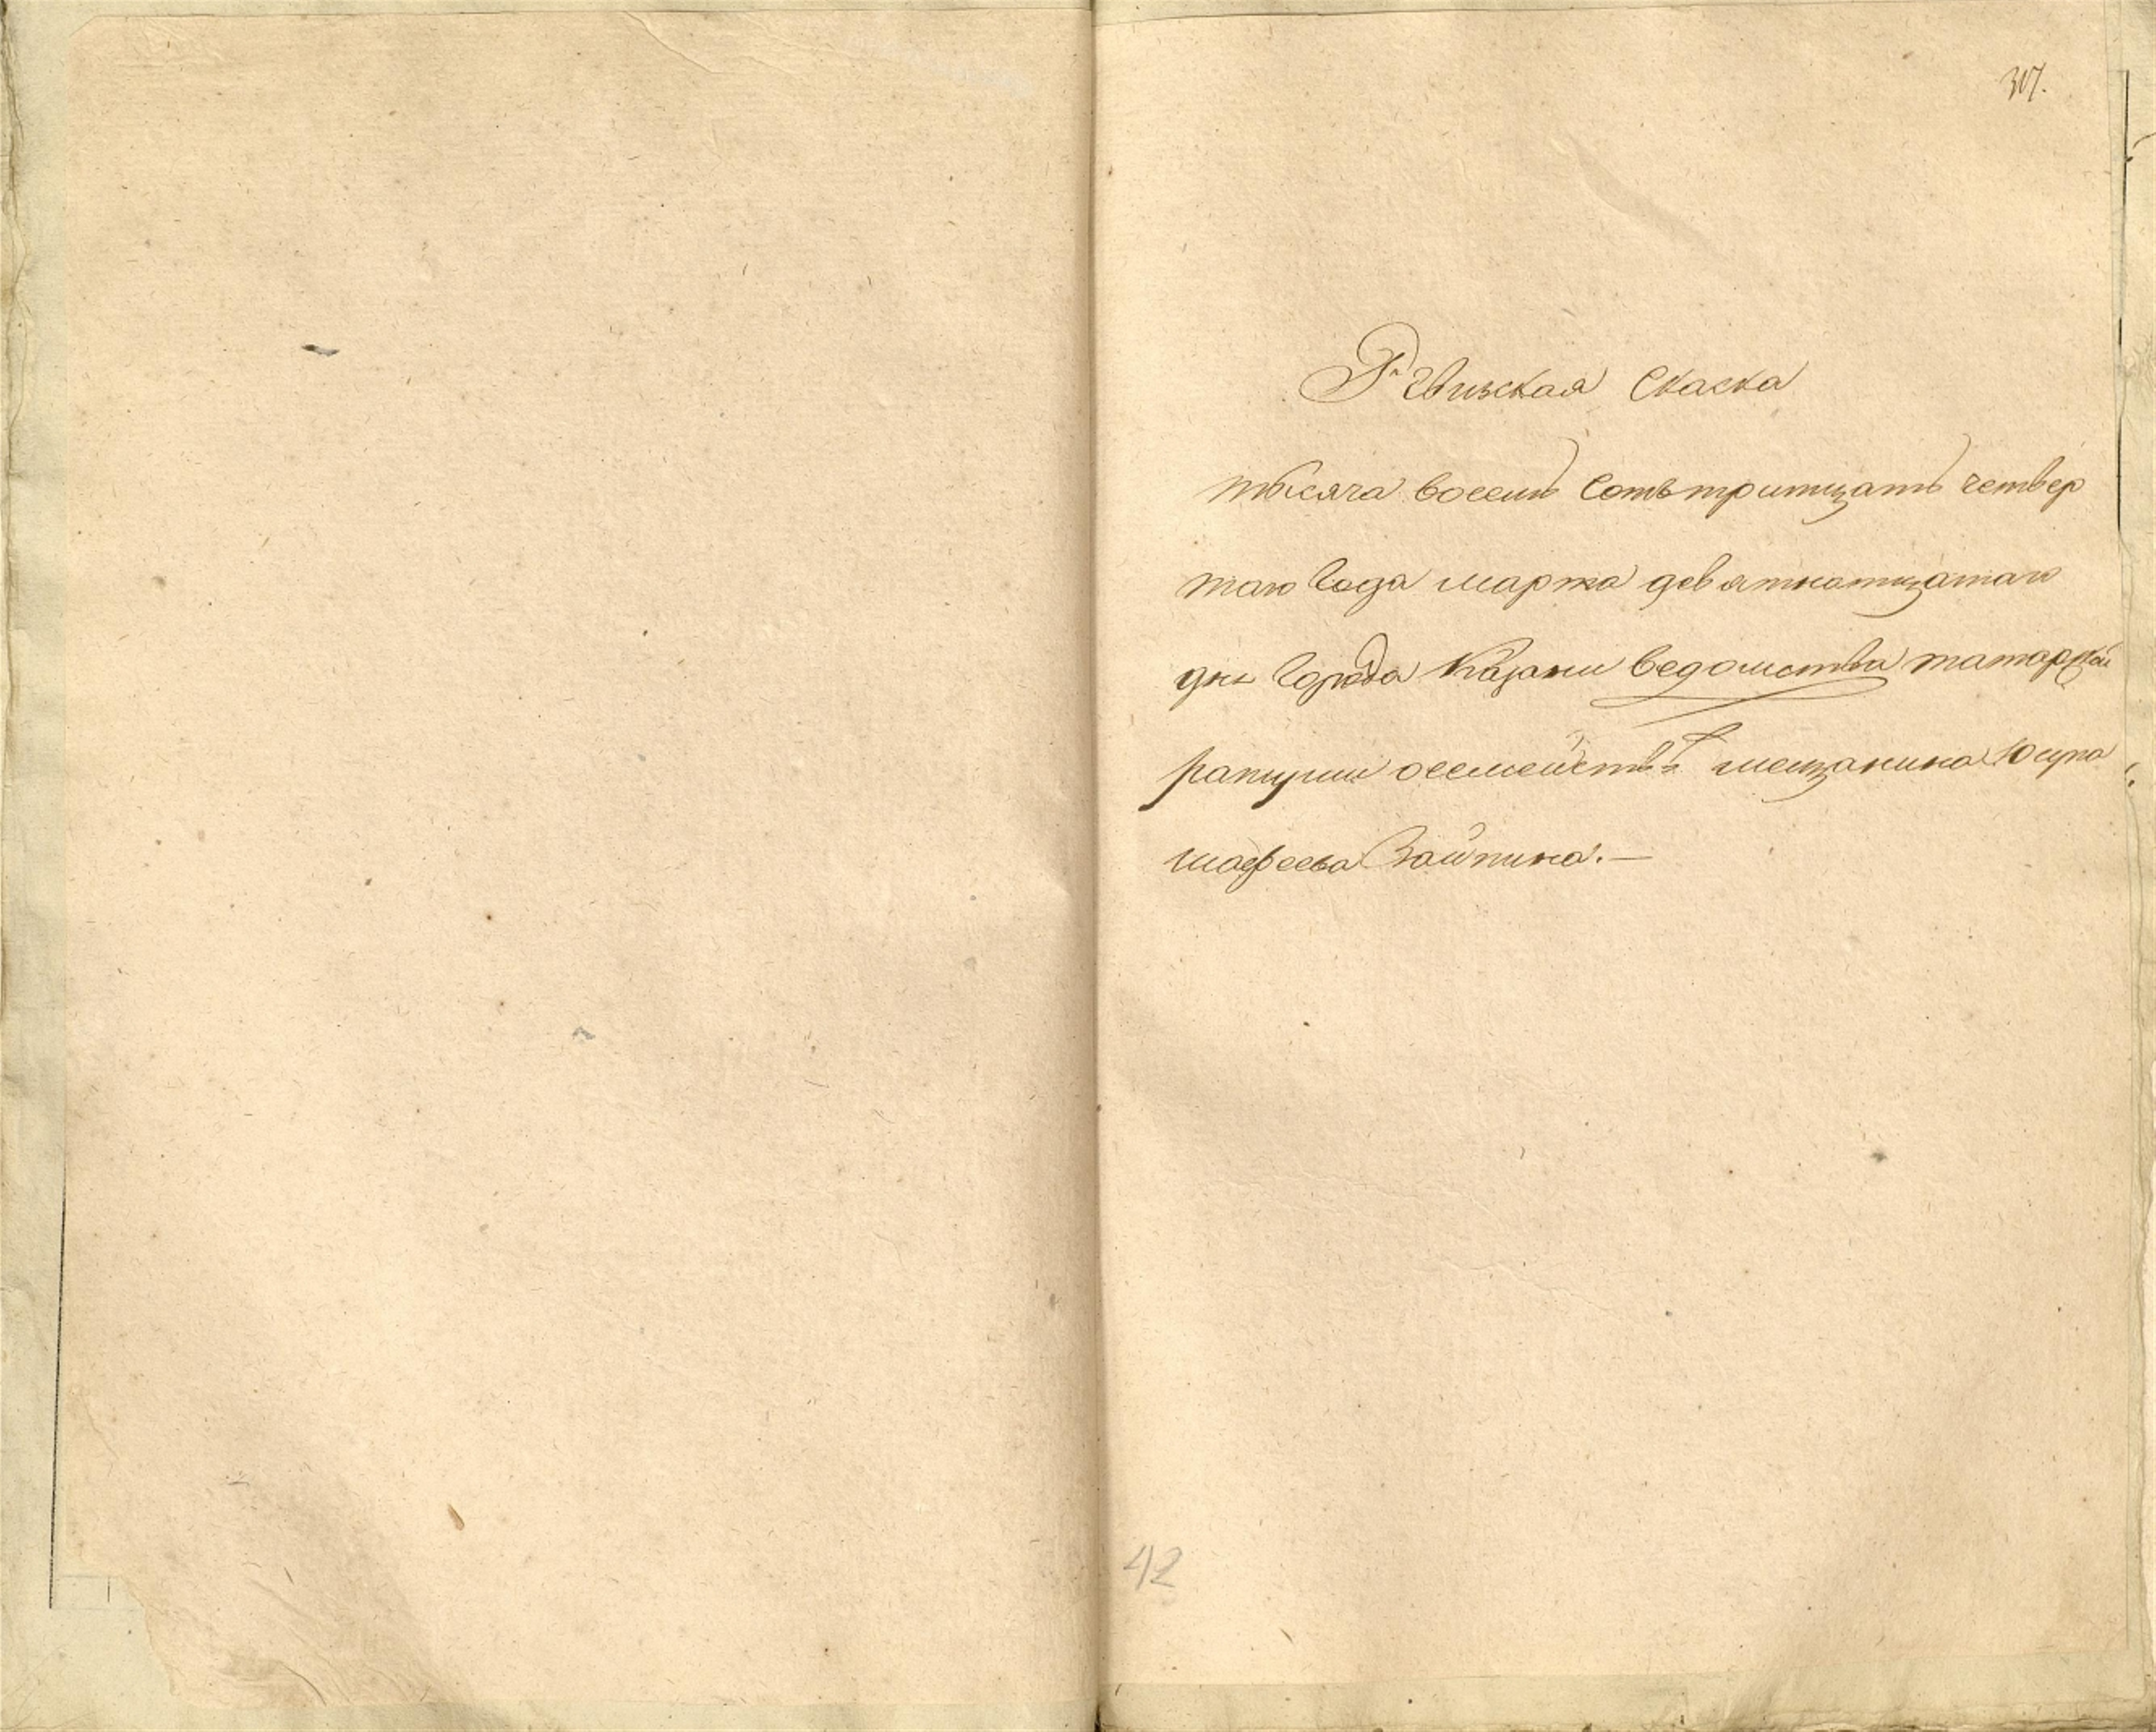 307.
Ревизская Скаска
тысяча восемь Сотъ тритцать четвер
таго Года марта девятнатцатаго
дня Города Казани ведомства татарской
ратуши осемействе мещанина Юсупа
шафеева Заитина. —
42